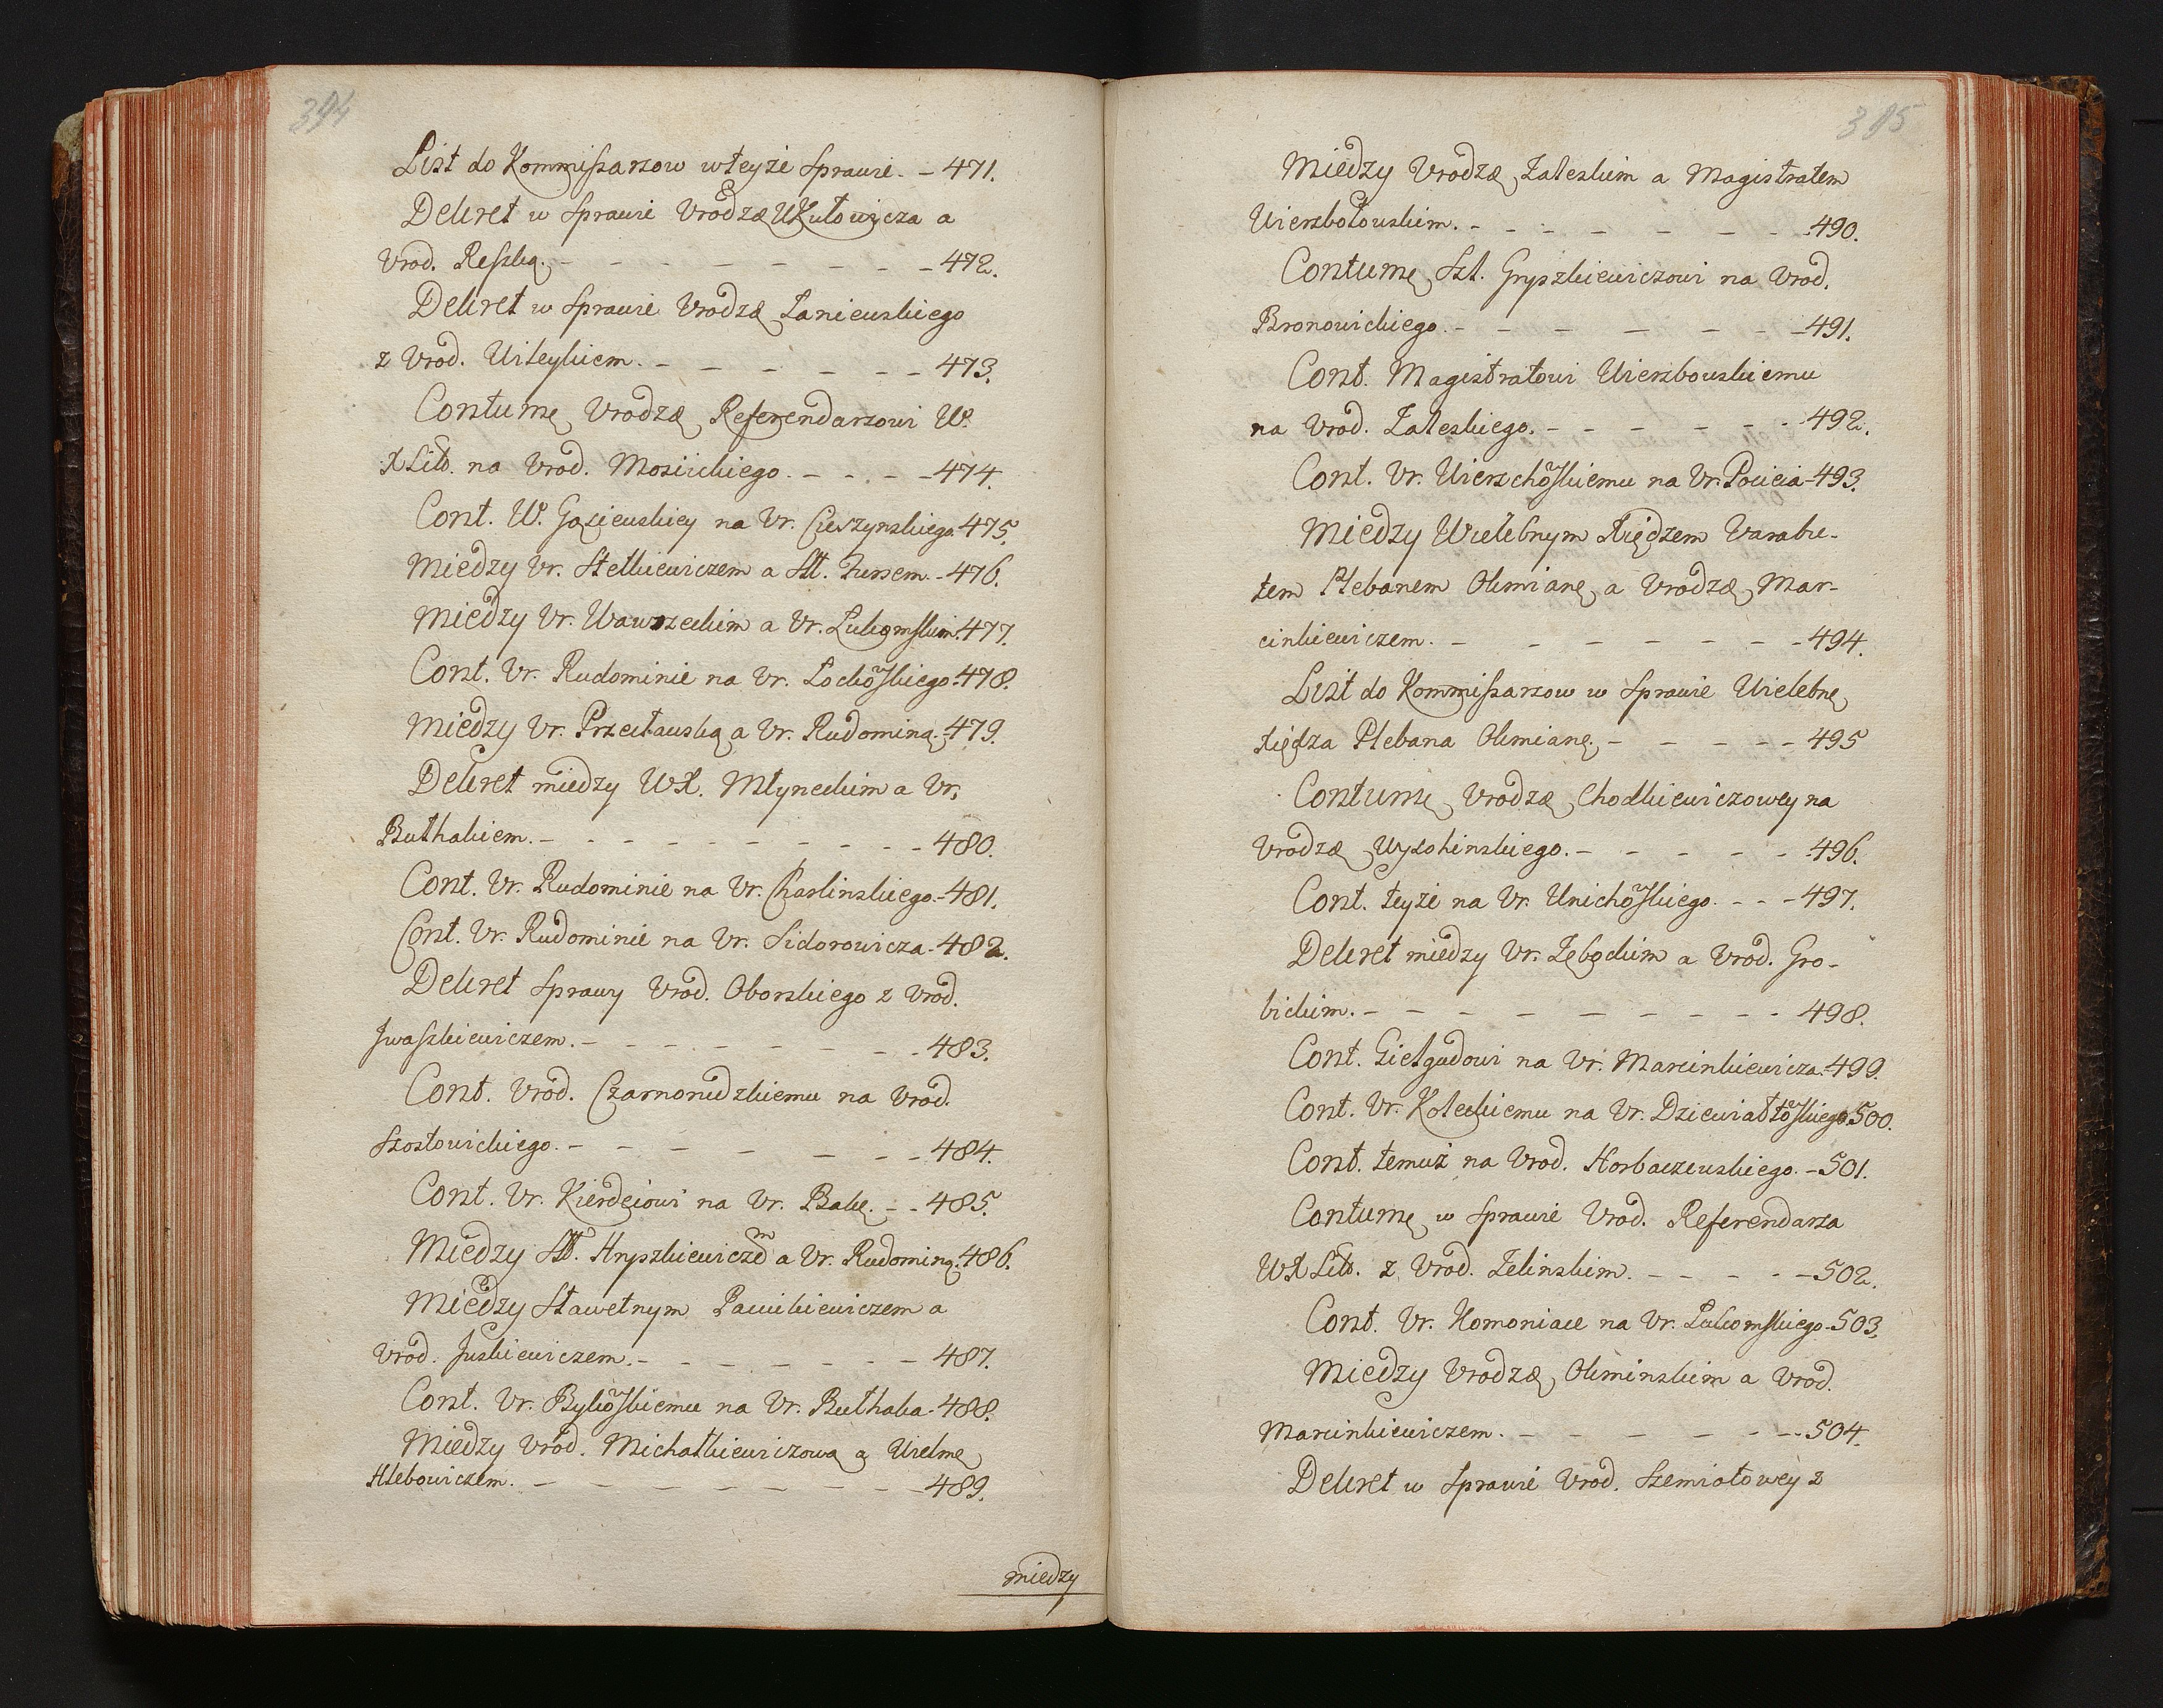 394
List do Kommissarzow wteyże Sprawie. - 471.
Dekret w Sprawie Vrodzę Wkutowicza a
Vrod. Reszką. - - - - - - - - - 472.
Dekret w Sprawie Vrodzę Łaniewskiego
z Vrod. Witeykiem. - - - - - - 473.
Contumę Vrodzę Referendarzowi W.
X Litt. na Vrod. Mosiickiego. - - - - 474.
Cont. W. Gąsiewskiey na Vr. Cieszynskiego 475.
Miedzy Vr. Stetkiewiczem a Szt. Zussem. - 476.
Miedzy Vr. Wawrzeckim a Vr. Łukomskim. 477.
Cont. Vr. Rudominie na Vr. Łockoskiego. 478.
Miedzy Vr. Przecławską a Vr. Rudominą. - 479.
Dekret miedzy WX. Młyneckim a Vr.
Buthakiem. - - - - - - - - - - 480.
Cont. Vr. Rudominie na Vr. Charlinskiego. - 481.
Cont. Vr. Rudominie na Vr. Sidorowicza. 482.
Dekret Sprawy Vrod. Oborskiego z Vrod.
Jwaszkiewiczem. - - - - - - - - - 483.
Cont. Vrod. Czarnonudzkiemu na Vrod.
Szostowickiego. - - - - - - - 484.
Cont. Vr. Kierdeiowi na Vr. Bakę. - - 485.
Miedzy Szt. Hryszkiewiczem a Vr. Rudominą. 486.
Miedzy Sławetnym Pawikiewiczem a
Vrod. Juskiewiczem. - - - - - - - 487.
Cont. Vr. Bykoskiemu na Vr. Buthaka. 488.
Miedzy Vrod. Michałkiewiczową a Wielmę
Hlebowiczem. - - - - - - - - 489.
miedzy
395
Miedzy Vrodzę Zaleskim a Magistratem
Wierzbołowskim. - - - - - - - - 490.
Contumę Szl. Gryszkiewiczowi na Vrod.
Bronowickiego. - - - - - - - 491.
Cont. Magistratowi Wierzbowskiemu
na Vrod. Zaleskiego. - - - - - - - 492.
Cont. Vr. Wierzchoskiemu na Vr. Pocieia - 493.
Miedzy Wielebnym Xiędzem Warabie-
tem Plebanem Olimianę a Vrodzę Mar-
cinkiewiczem. - - - - - - - - 494.
List do Kommissarzow w Sprawie Wielebnę
Xiędza Plebana Olimianę. - - - - - 495
Contumę Vrodzę Chodkiewiczowey na
Vrodzę Wysohinskiego. - - - - - - 496.
Cont. teyże na Vr. Unichoskiego. - - - 497.
Dekret miedzy Vr. Zębockim a Vrod. Gro-
bickim. - - - - - - - - - - 498.
Cont. Giełgudowi na Vr. Marcinkiewicza. - 499.
Cont. Vr. Koteckiemu na Vr. Dziewiałtoskiego. 500.
Cont. temuż na Vrod. Horbaczewskiego. - 501.
Contumę w Sprawie Vrod. Referendarza
WX Litt. z Vrod. Zelinskim. - - - - - 502.
Cont. Vr. Komoniace na Vr. Łukomskiego. 503.
Miedzy Vrodzę Oliminskim a Vrod.
Marcinkiewiczem. - - - - - - - 504.
Dekret w Sprawie Vrod. Szemiotowey z